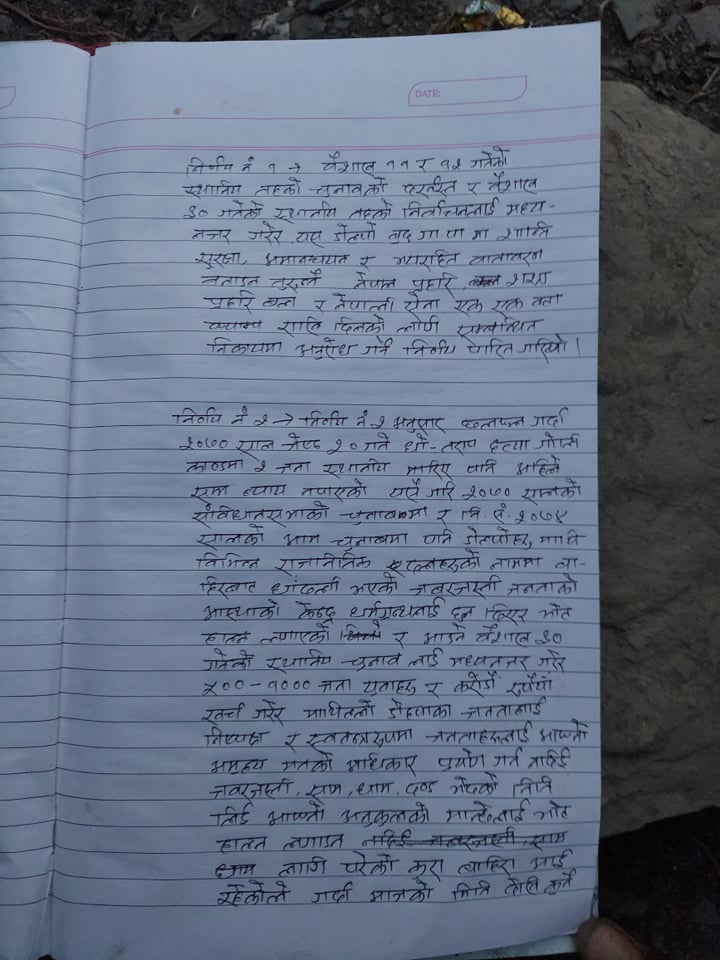 DATE:
निर्णय नं १ → बैशाख ११ र १२ गतेको
स्थानिय तहको चुनावको र बैशाख
३० गतेको स्थानीय तहको निर्वाचनलाई मध्य-
नजर गरेर यस डोल्पो बुद्ध गा.पा मा शान्ति
सुरक्षा, अमानचयन र भयरहित वातावरण
नेपाल प्रहरि शसस्त्र
प्रहरि बल र नेपाली सेना एक एक वटा
क्याम्प राखि दिनको लागी सम्बन्धित
निकायमा अनुरोध गर्ने निर्णय पारित गरियो।
निर्णय नं २ → निर्णय नं २ अनुसार छलफल गर्दा
२०७० साल जेष्ठ २० गते धो-तराप हत्या गोली
काण्डमा २ जना स्थानीय मारिए पनि अहिले
सम्म न्याय नपाएको यसै गरि २०७० सालको
संविधानसभाको चुनावमा र वि.सं. २०७४
सालको आम चुनावमा पनि डोल्पोहरु माथि
विभिन्न राजनितिक दलहरुको नाममा बा-
हिरबाट धांदली भएको जबरजस्ती जनताको
आस्थाको केन्द्र धर्मग्रन्थलाई छुन दिएर भोट
हाल्न लगाएको र आउने बैशाख ३०
गतेको स्थानीय चुनाव लाई मध्यनजर गरेर
५०० - १००० जना युवाहरु र करोडौं रुपैयाँ
खर्च गरेर माथिल्लो डोल्पाका जनतालाई
निष्पक्ष र स्वतन्त्ररुपमा जनताहरुलाई आफ्नो
अमुल्य मतको अधिकार प्रयोग गर्न नदिई
जबरजस्ती, साम, धाम, दण्ड भेदको निति
लिई आफ्नो अनुकुलको मान्छेलाई भोट
हाल्न लगाउन नदिई जबरजस्ती, साम
धाम लागि परेको कुरा बाहिर आई
रहेकोले गर्दा आजको मिति देखि कुनै